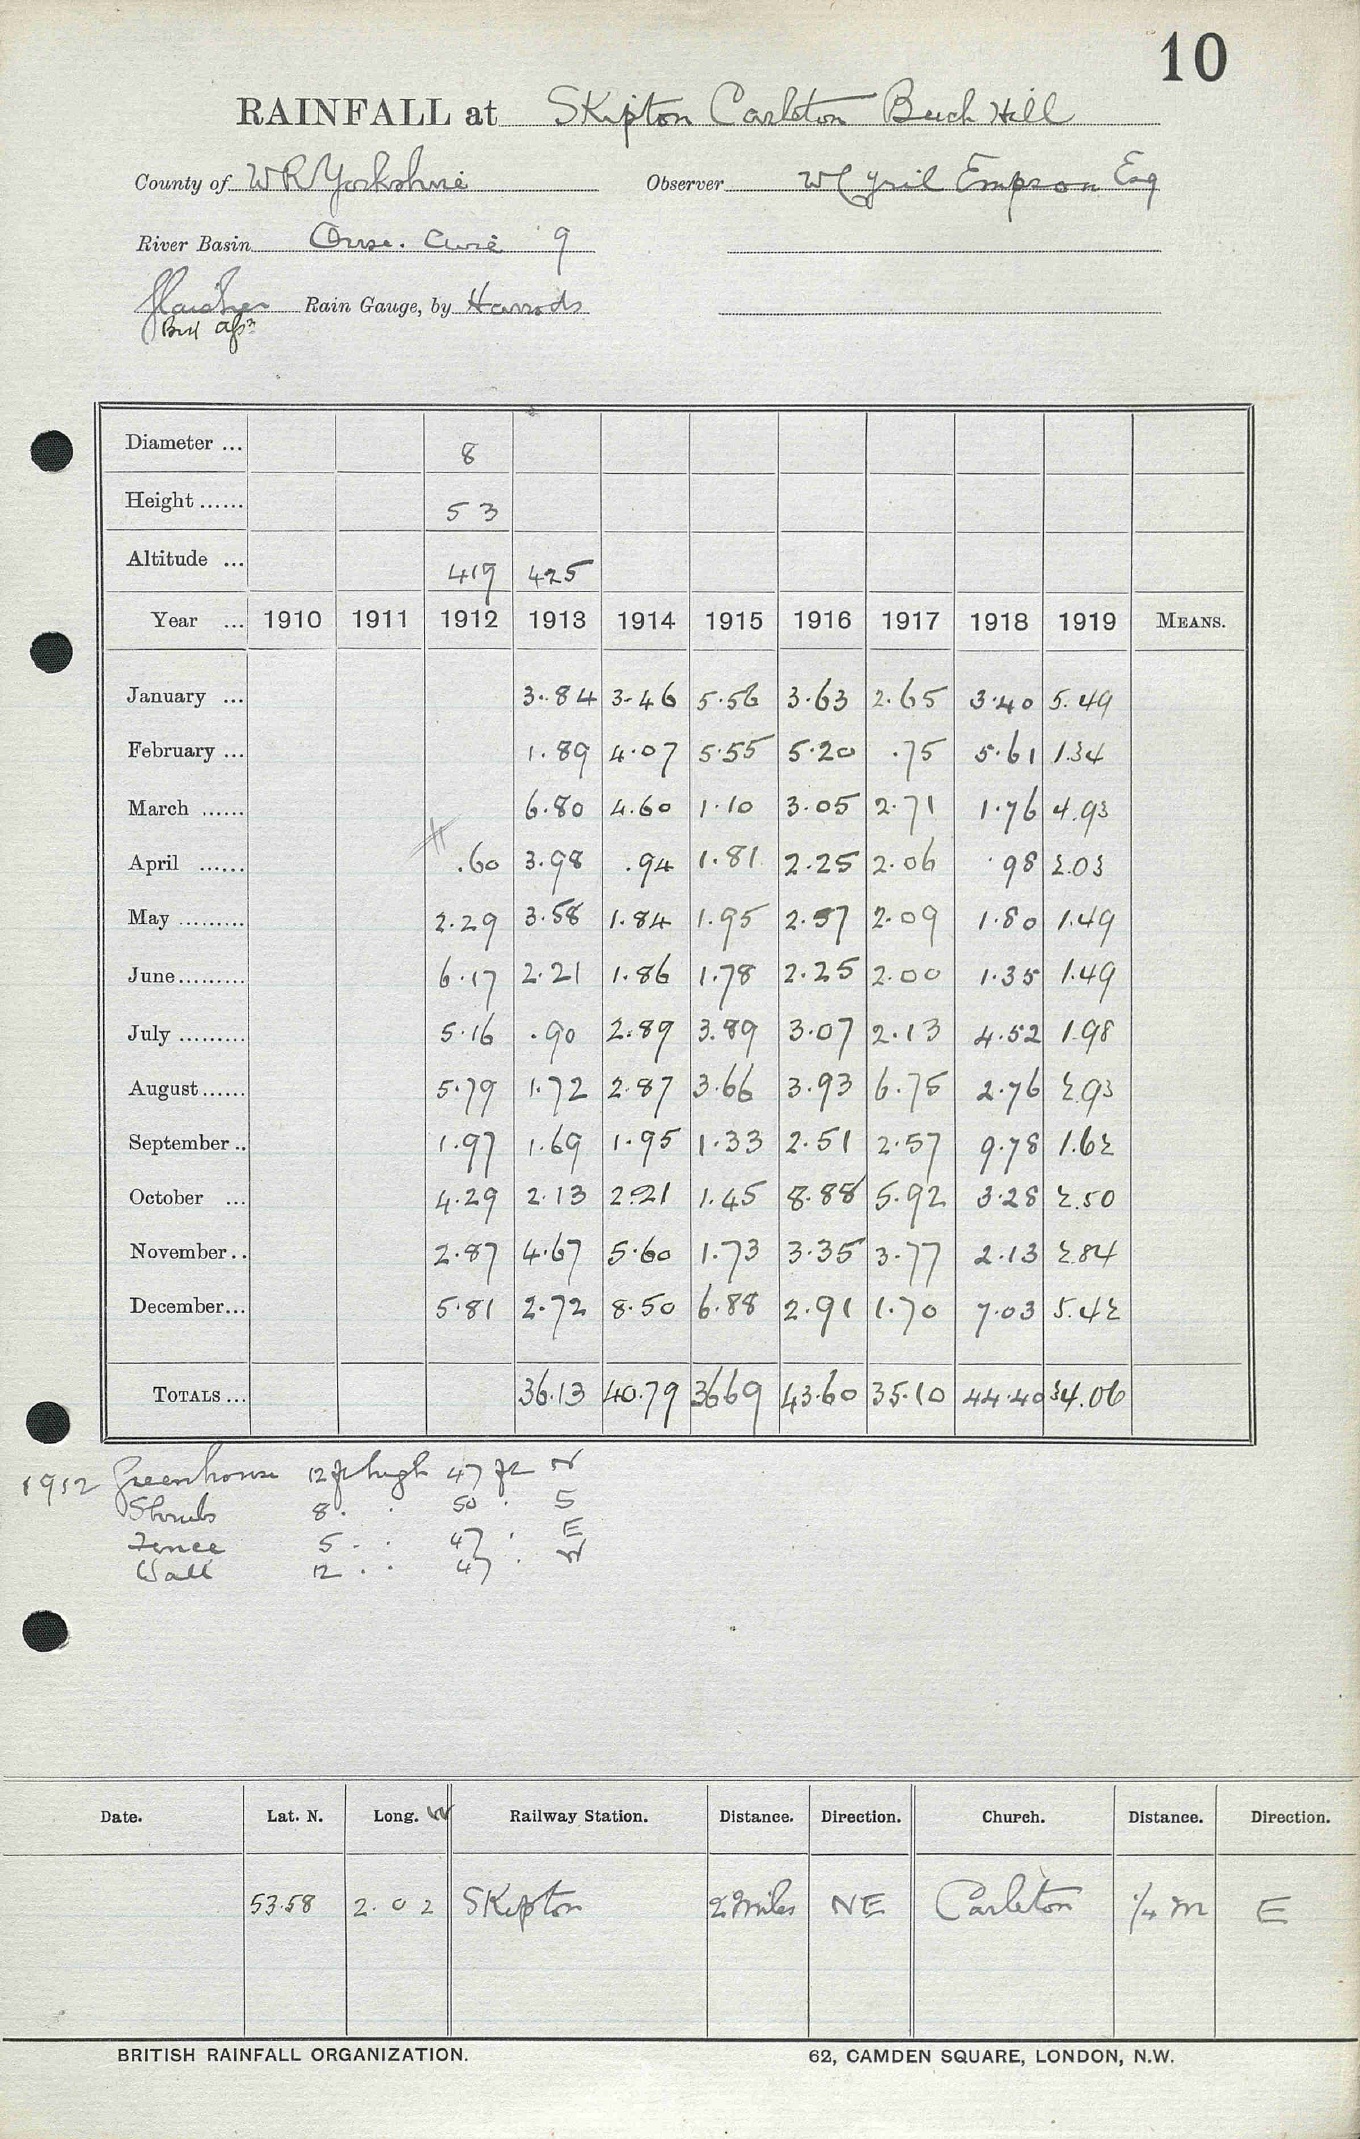 10
RAINFALL at Skipton Carleton Beech Hill
County of W R Yorkshire Observer W Cyril Empson Esq
River Basin Ouse. Aire 9
Rain Gauge, by Harrods
Diameter ... 8
Height ...... 53
Altitude ... 419 425
Year ... 1910 1911 1912 1913 1914 1915 1916 1917 1918 1919 MEANS.
January ... 3.84 3.46 5.56 3.63 2.65 3.40 5.49
February ... 1.89 4.07 5.55 5.20 .75 5.61 1.34
March ...... 6.80 4.60 1.10 3.05 2.71 1.76 4.93
April ...... .60 3.98 .94 1.81 2.25 2.06 .98 2.03
May ......... 2.29 3.58 1.84 1.95 2.57 2.09 1.80 1.49
June ......... 6.17 2.21 1.86 1.78 2.25 2.00 1.35 1.49
July ......... 5.16 .90 2.89 3.89 3.07 2.13 4.52 1.98
August ...... 5.79 1.72 2.87 3.66 3.93 6.75 2.76 2.93
September .. 1.97 1.69 1.95 1.33 2.51 2.57 9.78 1.62
October ... 4.29 2.13 2.21 1.45 8.88 5.92 3.28 2.50
November .. 2.87 4.67 5.60 1.73 3.35 3.77 2.13 2.84
December... 5.81 2.72 8.50 6.88 2.91 1.70 7.03 5.42
TOTALS ... 36.13 40.79 3669 43.60 35.10 44.40 34.06
1912 Greenhouse 12 ft high 47 ft N
Shrubs 8 . . 50 . S
Fence 5 . . 47 . E
Wall 12 . . 47 . W
Date. Lat. N. Long. W Railway Station. Distance. Direction. Church. Distance. Direction.
53.58 2. 0 2 Skipton 2 Miles NE Carleton 1/4 m E
BRITISH RAINFALL ORGANIZATION. 62, CAMDEN SQUARE, LONDON, N.W.